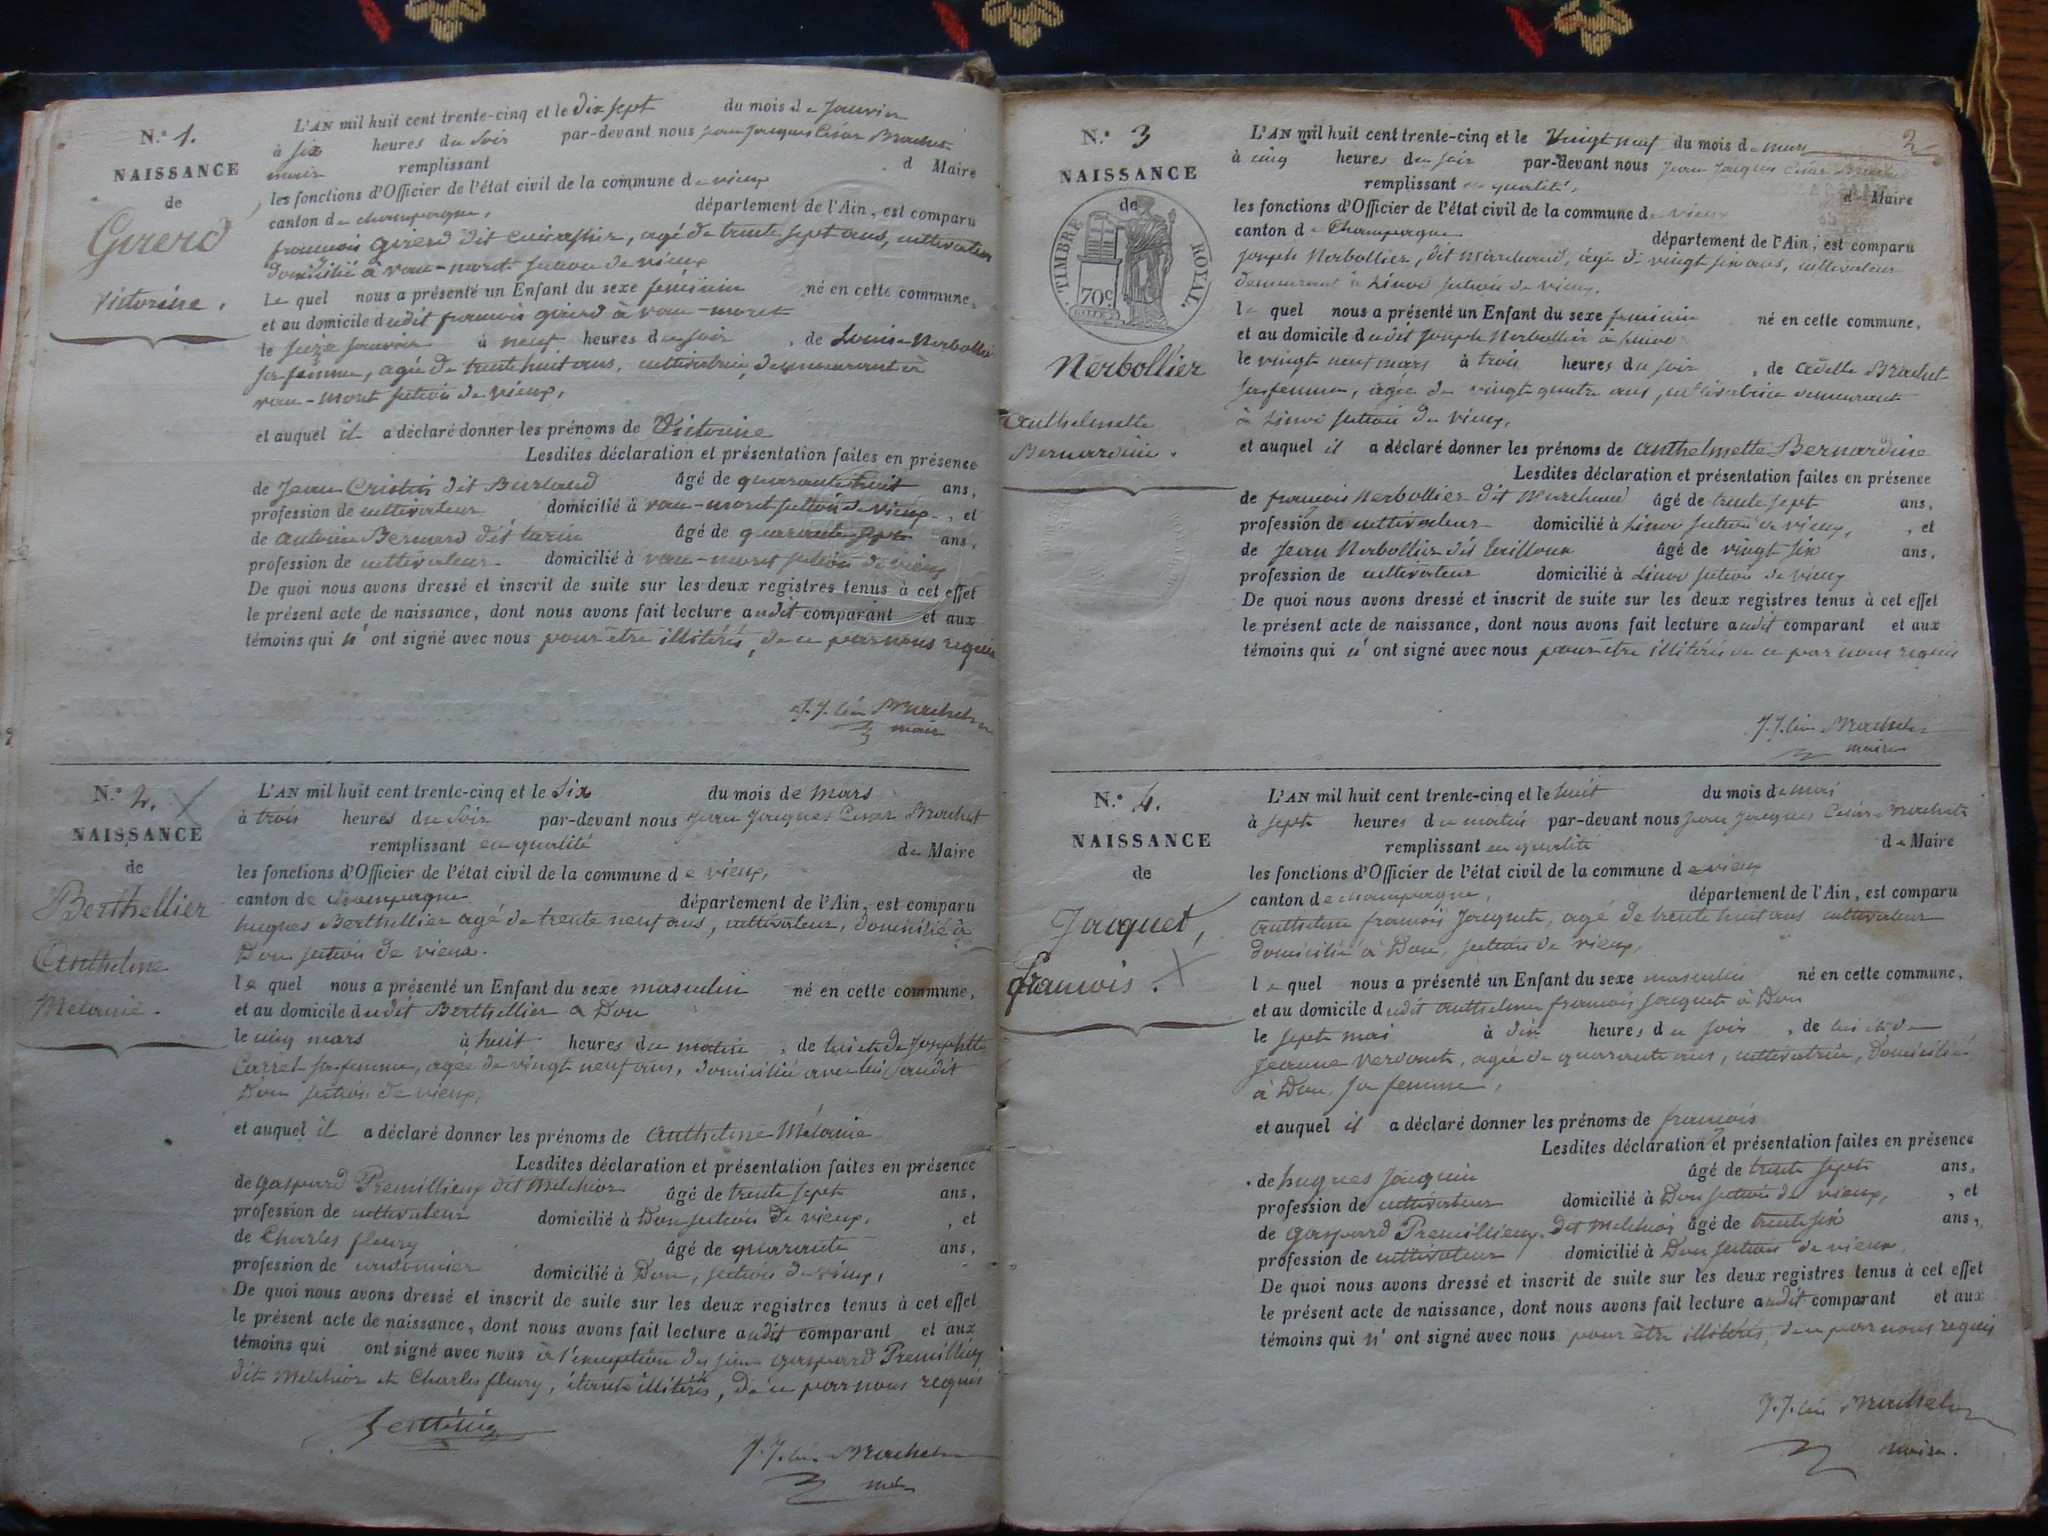 N.° 1.
NAISSANCE
de
Girerd
Victorine.
L'AN mil huit cent trente-cinq et le dix sept du mois de Janvier
à six heures du soir par-devant nous jean Jacques Cesar Brachet
maire remplissant d Maire
les fonctions d'Officier de l'état civil de la commune de vieux
canton de champagne, département de l'Ain, est comparu
françois Girerd dit cuirassier, agé de trente sept ans, cultivateur
domicilié à vaux-moret section de vieux
le quel nous a présenté un Enfant du sexe feminin né en cette commune,
et au domicile dudit françois girerd à vaux-moret
le seize janvier à neuf heures du soir, de Louise Nerbollier
sa femme, agée de trente huit ans, cultivatrice, demeurant à
vaux-moret section de vieux,
et auquel il a déclaré donner les prénoms de Victorine
Lesdites déclaration et présentation faites en présence
de Jean Cristin dit Burland âgé de quarante huit ans,
profession de cultivateur domicilié à vaux-moret section de vieux, et
de antoine Bernard dit turin âgé de quarante sept ans,
profession de cultivateur domicilié à vaux-moret section de vieux
De quoi nous avons dressé et inscrit de suite sur les deux registres tenus à cet effet
le présent acte de naissance, dont nous avons fait lecture audit comparant et aux
témoins qui n'ont signé avec nous pour être illitérés, de ce par nous requis
J. J. César Brachet
maire
N.° 2.
NAISSANCE
de
Berthellier
Anthelme
Melanie.
L'AN mil huit cent trente-cinq et le six du mois de mars
à trois heures du soir par-devant nous jean Jacques Cesar Brachet
remplissant en qualité de Maire
les fonctions d'Officier de l'état civil de la commune de vieux,
canton de champagne département de l'Ain, est comparu
hugues Berthellier agé de trente neuf ans, cultivateur, domicilié à
Don section de vieux.
le quel nous a présenté un Enfant du sexe masculin né en cette commune,
et au domicile dudit Berthellier a Don
le cinq mars à huit heures du matin, de lui et de Josephtte
Carret sa femme, agée de vingt neuf ans, domiciliée avec lui audit
Don section de vieux,
et auquel il a déclaré donner les prénoms de Anthelme Mélanie
Lesdites déclaration et présentation faites en présence
de gaspard Premillieux dit Melchior âgé de trente sept ans,
profession de cultivateur domicilié à Don section de vieux, et
de Charles fleury âgé de quarante ans,
profession de cantonnier domicilié à Don, section de vieux,
De quoi nous avons dressé et inscrit de suite sur les deux registres tenus à cet effet
le présent acte de naissance, dont nous avons fait lecture audit comparant et aux
témoins qui ont signé avec nous à l'exception des sieurs gaspard Premillieux
dit Melchior et Charles fleury, étants illitérés, de ce par nous requis
J. J. César Brachet
N.° 3
2
NAISSANCE
de
TIMBRE ROYAL.
70c
Nerbollier
Anthelmette
Bernardine.
L'AN mil huit cent trente-cinq et le Vingt neuf du mois de mars
à cinq heures du soir par-devant nous jean Jacques César Brachet
remplissant en qualité, de Maire
les fonctions d'Officier de l'état civil de la commune de vieux
canton de Champagne département de l'Ain, est comparu
joseph Nerbollier, dit Marchand, âgé de vingt six ans, cultivateur
demeurant à Linod section de vieux.
le quel nous a présenté un Enfant du sexe feminin né en cette commune,
et au domicile dudit Joseph Nerbollier à Linod
le vingt neuf mars à trois heures du soir, de adelle Brachet
sa femme, agée de vingt quatre ans, cultivatrice demeurant
à Linod section de vieux,
et auquel il a déclaré donner les prénoms de anthelmette Bernardine
Lesdites déclaration et présentation faites en présence
de françois Nerbollier dit Marchand âgé de trente sept ans,
profession de cultivateur domicilié à Linod section de vieux, et
de Jean Nerbollier dit tailleur âgé de vingt six ans,
profession de cultivateur domicilié à Linod section de vieux
De quoi nous avons dressé et inscrit de suite sur les deux registres tenus à cet effet
le présent acte de naissance, dont nous avons fait lecture audit comparant et aux
témoins qui n'ont signé avec nous pour être illitérés de ce par nous requis
J. J. César Brachet
maire
N.° 4.
NAISSANCE
de
Jacquet,
françois.
L'AN mil huit cent trente-cinq et le huit du mois de mai
à sept heures du matin par-devant nous jean Jacques César Brachet
remplissant en qualité de Maire
les fonctions d'Officier de l'état civil de la commune de vieux
canton de champagne, département de l'Ain, est comparu
anthelme francois Jacquet, agé de trente huit ans cultivateur
domicilié à Don, section de vieux,
le quel nous a présenté un Enfant du sexe masculin né en cette commune,
et au domicile dudit anthelme francois Jacquet à Don
le sept mai à dix heures du soir, de lui et de
Jeanne vervant, agée de quarante ans, cultivatrice, domiciliée
à Don, sa femme,
et auquel il a déclaré donner les prénoms de françois
Lesdites déclaration et présentation faites en présence
de hugues Jacquin âgé de trente sept ans,
profession de cultivateur domicilié à Don section de vieux, et
de gaspard Premillieux dit Melchior âgé de trente six ans,
profession de cultivateur domicilié à Don section de vieux,
De quoi nous avons dressé et inscrit de suite sur les deux registres tenus à cet effet
le présent acte de naissance, dont nous avons fait lecture audit comparant et aux
témoins qui n'ont signé avec nous pour être illitérés, de ce par nous requis
J. J. César Brachet
maire.